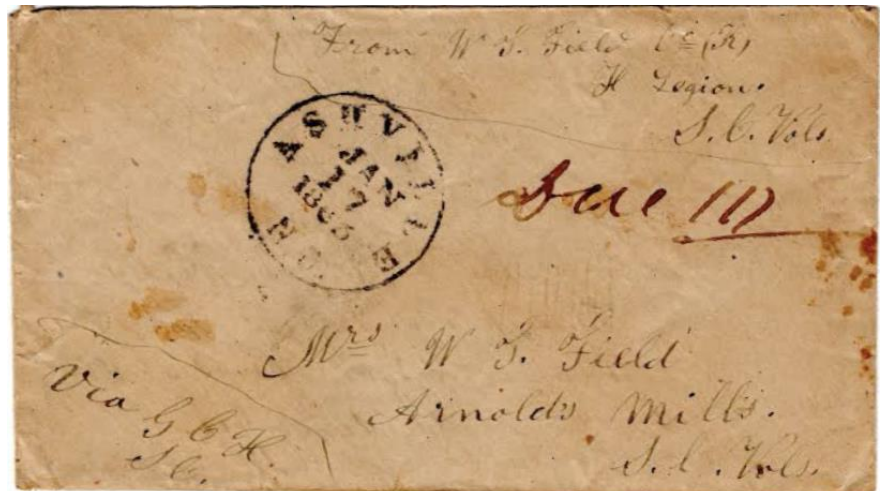 From W. T. Field Co (K)
H Legion.
S. C. Vols
ASHVILLE
JAN
17
1865
N C
Due 10
Mrs W. T. Field
Arnolds Mills.
S. C. Vols.
Via G C H.
S C.